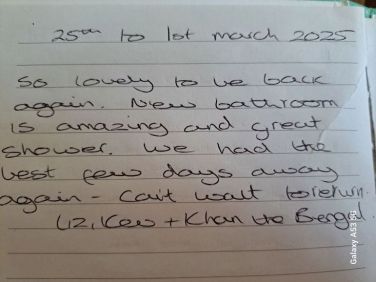 25th to 1st march 2025
So lovely to be back
again. New bathroom
is amazing and great
shower. We had the
best few days away
again - Can't wait to return.
Liz, Kev + Khan the Bengal.
Galaxy A53 5G